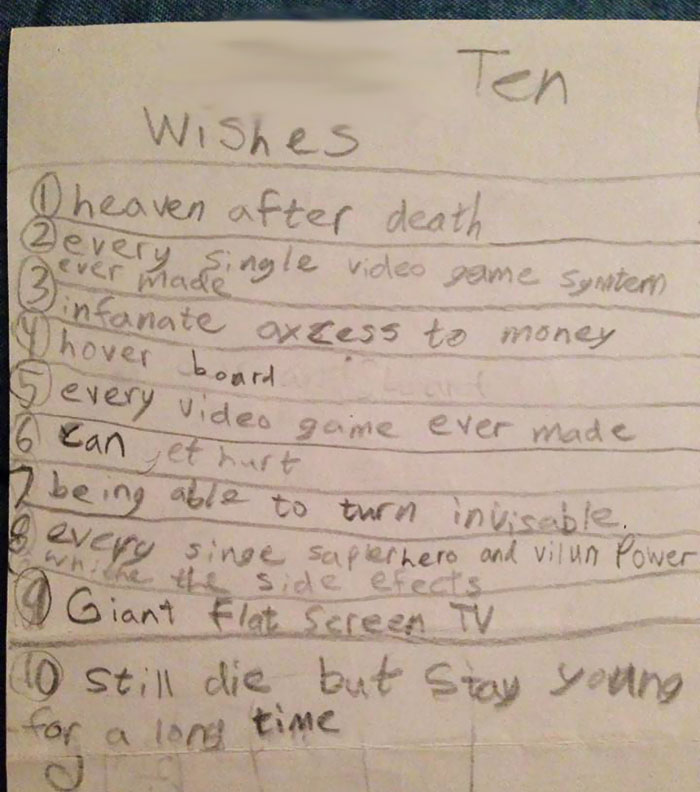 Ten
Wishes
① heaven after death
② every single video game symtem
ever made
③ infanate axzess to money
④ hover board
⑤ every video game ever made
⑥ can jet hurt
7 being able to turn invisable.
⑧ every singe saplerhero and vilun Power
the side efects
⑨ Giant flat screen TV
⑩ still die but stay young
for a long time